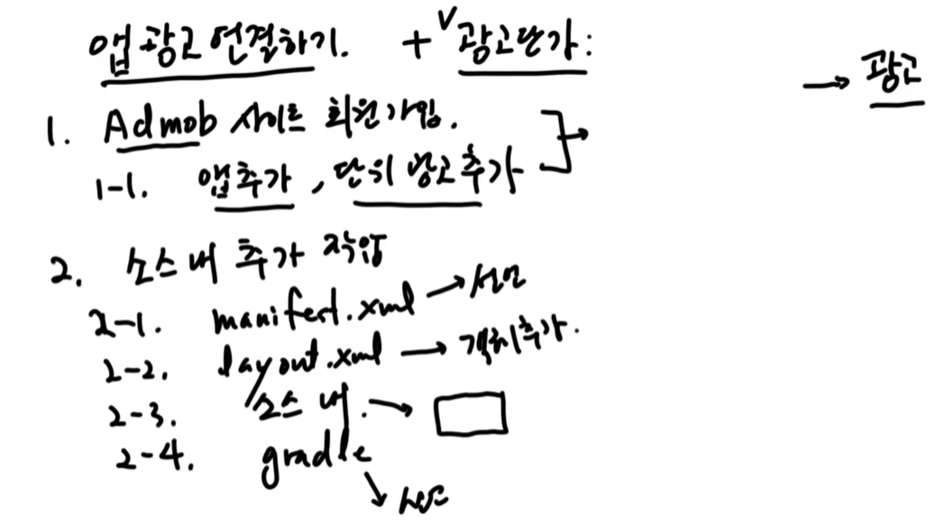 앱 광고 연결하기. + V 광고단가:
→ 광고
1. Admob 사이트 회원가입.
1-1. 앱추가, 단위 광고추가
2. 소스 내 추가 작업
2-1. manifest.xml → 선언
2-2. layout.xml → 객체추가.
2-3. 소스 내. →
2-4. gradle
↘